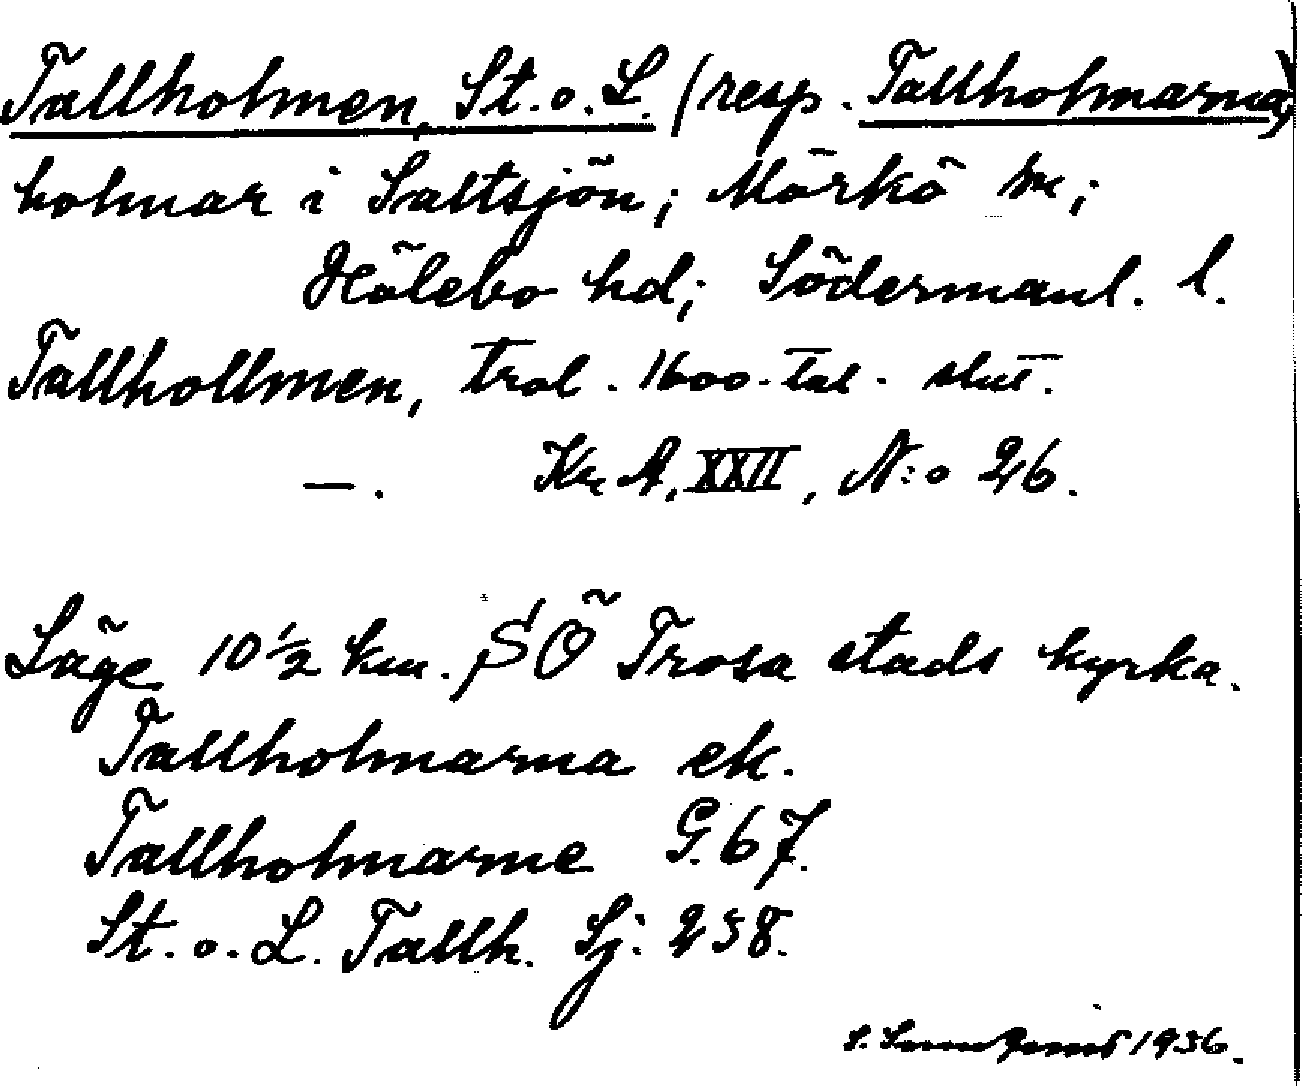 Tallholmen, St. o. L. (resp. Tallholmarna)
holmar i Saltsjön; Mörkö sn;
Hölebo hd; Södermanl. l.
Tallhollmen, trol. 1600-tal. slut.
—. Kr A, XXII, N:o 26.
Läge 10½ km. SÖ Trosa stads kyrka.
Tallholmarna ek.
Tallholmarne G. 67.
St. o. L. Tallh. Sj: 238.
S. 1936.